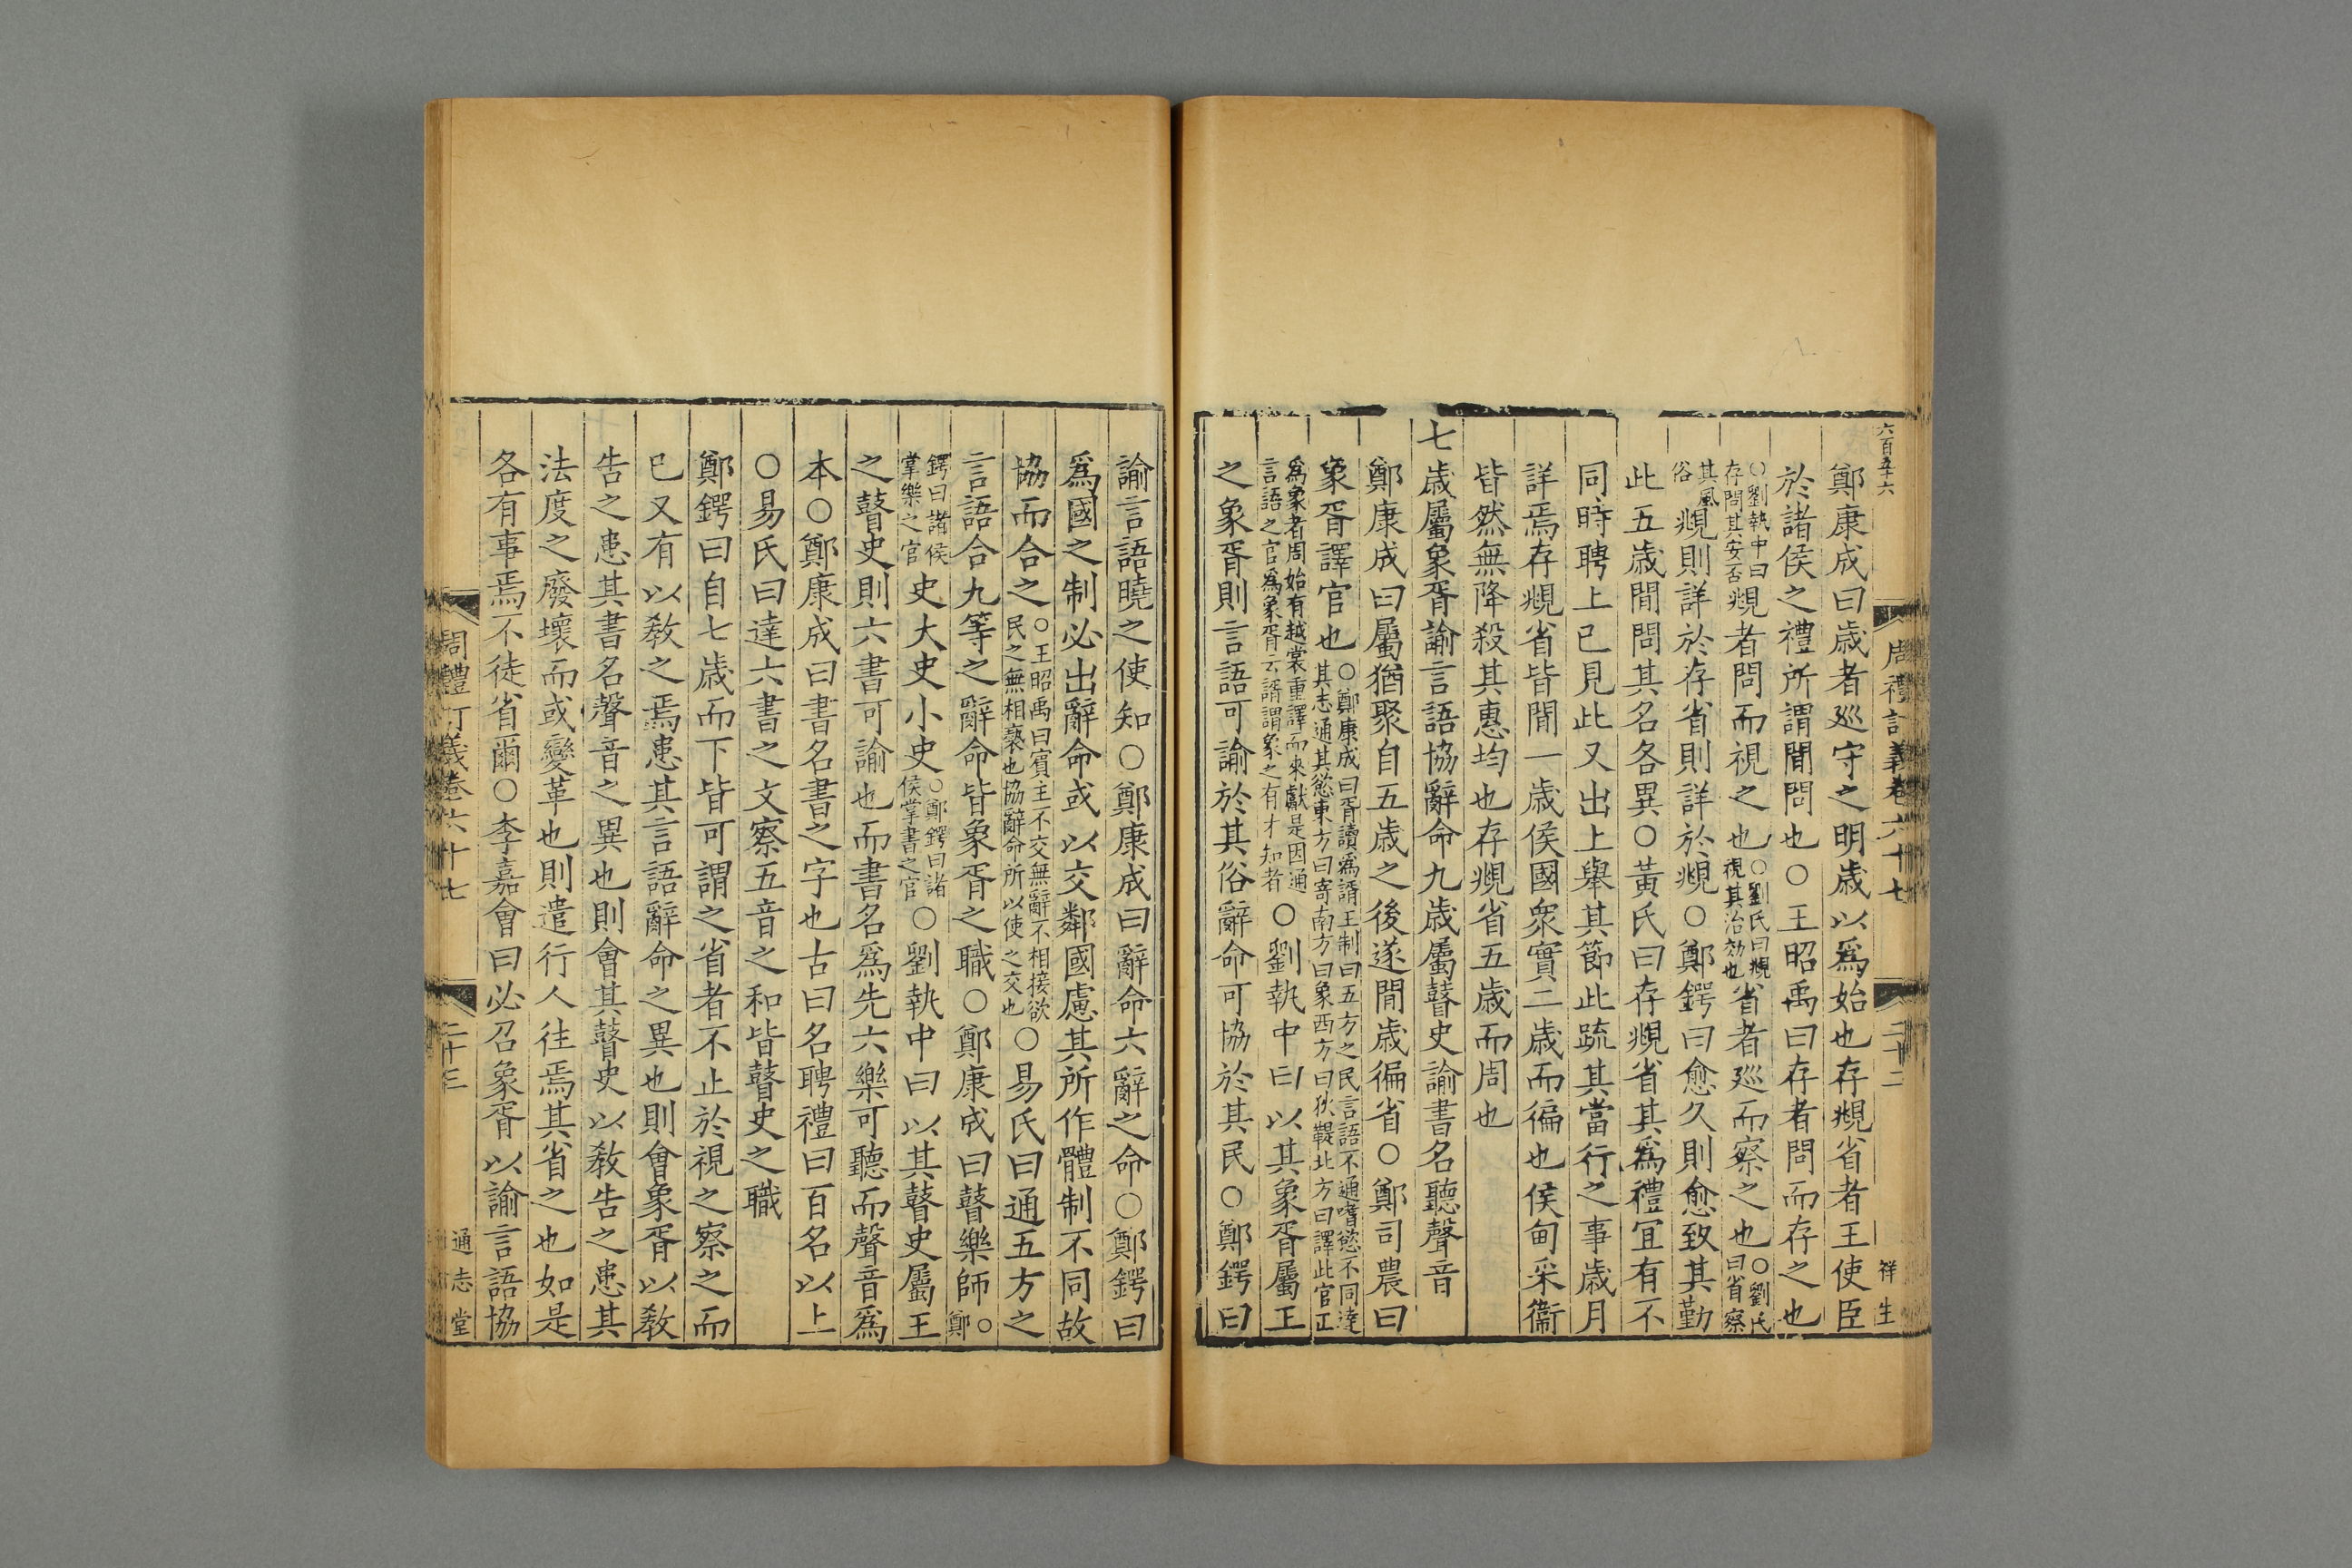 六百五十六
周禮訂義卷六十七
二十二
祥生
鄭康成曰歲者巡守之明歲以爲始也存覜省者王使臣
於諸侯之禮所謂閒問也○王昭禹曰存者問而存之也
○劉執中曰存問其安否覜者問而視之也○劉氏曰覜視其治效也省者巡而察之也○劉氏曰省察
其風俗覜則詳於存省則詳於覜○鄭鍔曰愈久則愈致其勤
此五歲閒問其名各異○黃氏曰存覜省其爲禮宜有不
同時聘上已見此又出上舉其節此䟽其當行之事歲月
詳焉存覜省皆閒一歲侯國衆實二歲而徧也侯甸采衞
皆然無降殺其惠均也存覜省五歲而周也
七歲屬象胥諭言語協辭命九歲屬瞽史諭書名聽聲音
鄭康成曰屬猶聚自五歲之後遂閒歲徧省○鄭司農曰
象胥譯官也○鄭康成曰胥讀爲諝王制曰五方之民言語不通嗜慾不同達其志通其慾東方曰寄南方曰象西方曰狄鞮北方曰譯此官正
爲象者周始有越裳重譯而來獻是因通言語之官爲象胥云諝謂象之有才知者○劉執中曰以其象胥屬王
之象胥則言語可諭於其俗辭命可協於其民○鄭鍔曰
諭言語曉之使知○鄭康成曰辭命六辭之命○鄭鍔曰
爲國之制必出辭命或以交鄰國慮其所作體制不同故
協而合之○王昭禹曰賓主不交無辭不相接欲民之無相褻也協辭命所以使之交也○易氏曰通五方之
言語合九等之辭命皆象胥之職○鄭康成曰瞽樂師○鄭
鍔曰諸侯掌樂之官史大史小史○鄭鍔曰諸侯掌書之官○劉執中曰以其瞽史屬王
之瞽史則六書可諭也而書名爲先六樂可聽而聲音爲
本○鄭康成曰書名書之字也古曰名聘禮曰百名以上
○易氏曰達六書之文察五音之和皆瞽史之職
鄭鍔曰自七歲而下皆可謂之省者不止於視之察之而
已又有以敎之焉患其言語辭命之異也則會象胥以敎
告之患其書名聲音之異也則會其瞽史以敎告之患其
法度之廢壞而或變革也則遣行人往焉其省之也如是
各有事焉不徒省爾○李嘉會曰必召象胥以諭言語協
周禮訂義卷六十七
二十三
通志堂